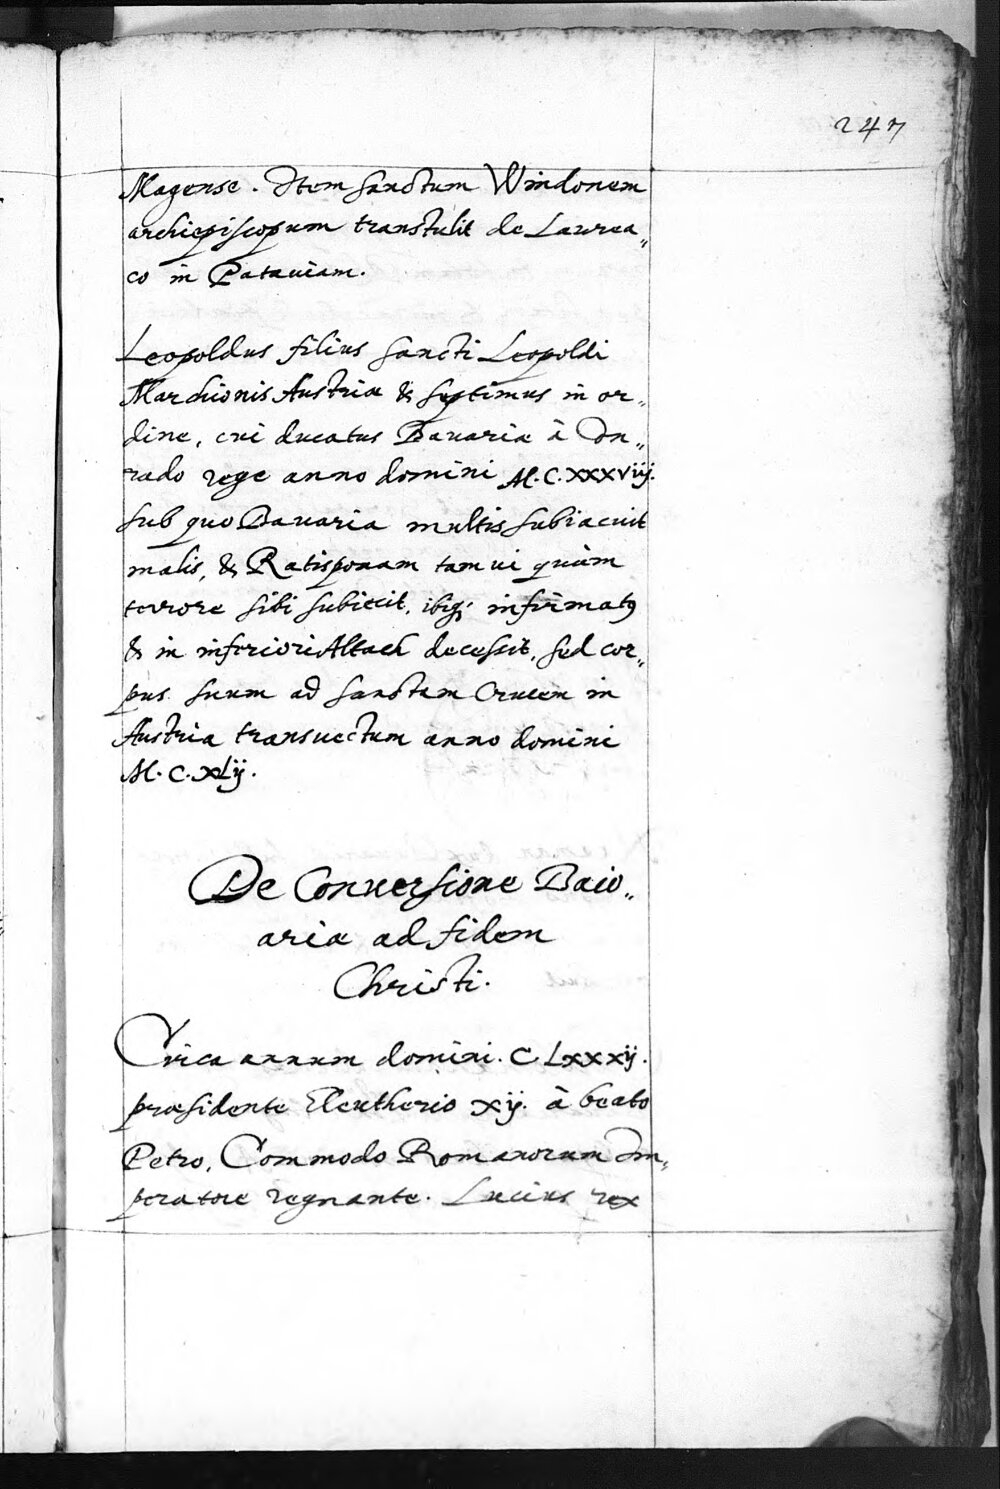 247
Magense. Item sanctum Windonem
archiepiscopum transtulit de Laurea„
co in Patauiam.
Leopoldus filius sancti Leopoldi
Marchionis Austriæ & septimus in or„
dine, cui ducatus Bauariæ à Con„
rado rege anno domini M.C.XXXViij.
sub quo Bauaria multis subiacuit
malis, & Ratisponam tam ui quàm
terrore sibi subiecit, ibiq; infirmatꝰ
& in inferiori Altach decessit, sed cor„
pus suum ad sanctam Crucem in
Austria transuectum anno domini
M.C.XLij.
De Conuersione Baio„
ariæ ad fidem
Christi.
Circa annum domini. C LXXXij.
præsidente Eleutherio Xij. à beato
Petro, Commodo Romanorum Im„
peratore regnante. Lucius rex